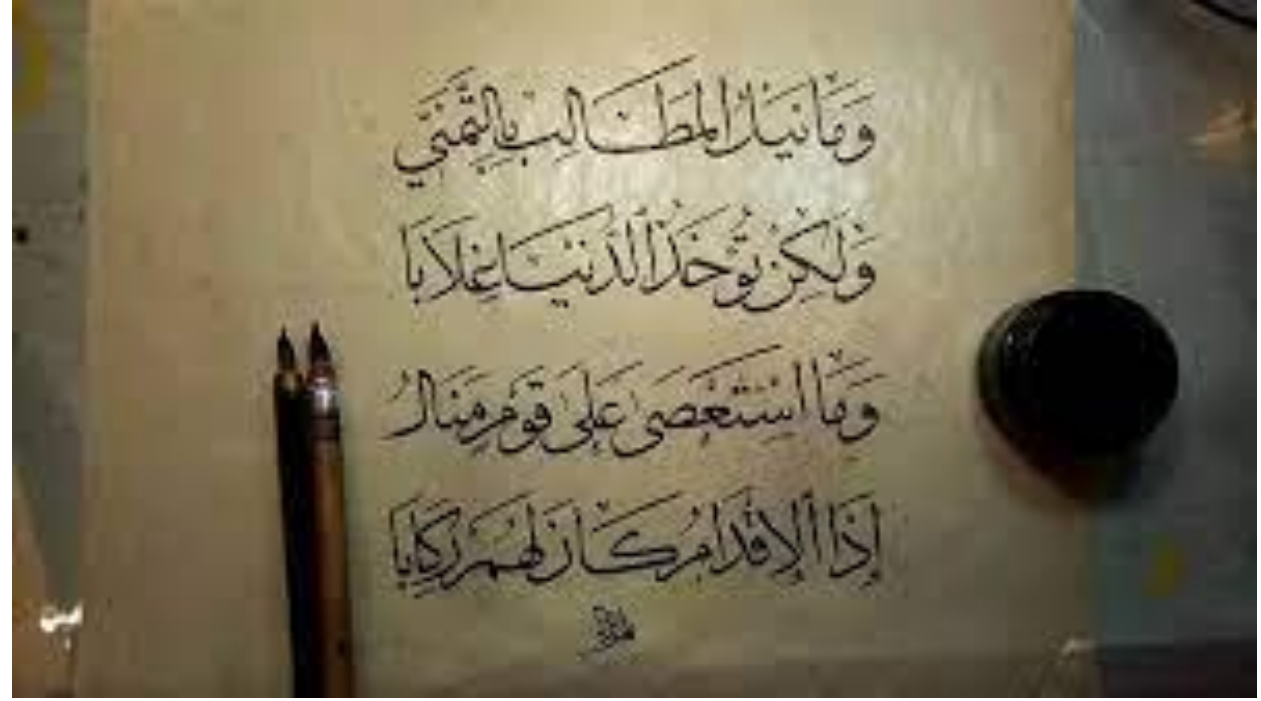 وَمَا نَيْلُ المَطَالِبِ بِالتَّمَنِّي
وَلَكِنْ تُؤْخَذُ الدُّنْيَا غِلَابَا
وَمَا اسْتَعْصَى عَلَى قَوْمٍ مَنَالٌ
إِذَا الإِقْدَامُ كَانَ لَهُمْ رِكَابَا